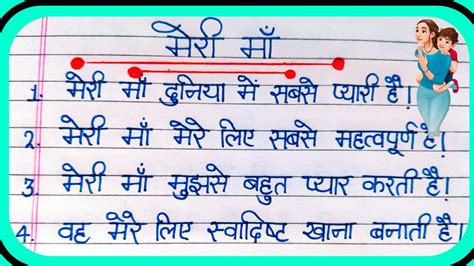 मेरी माँ
1. मेरी माँ दुनिया में सबसे प्यारी है।
2. मेरी माँ मेरे लिए सबसे महत्वपूर्ण है।
3 मेरी माँ मुझसे बहुत प्यार करती है।
4. वह मेरे लिए स्वादिष्ट खाना बनाती है।